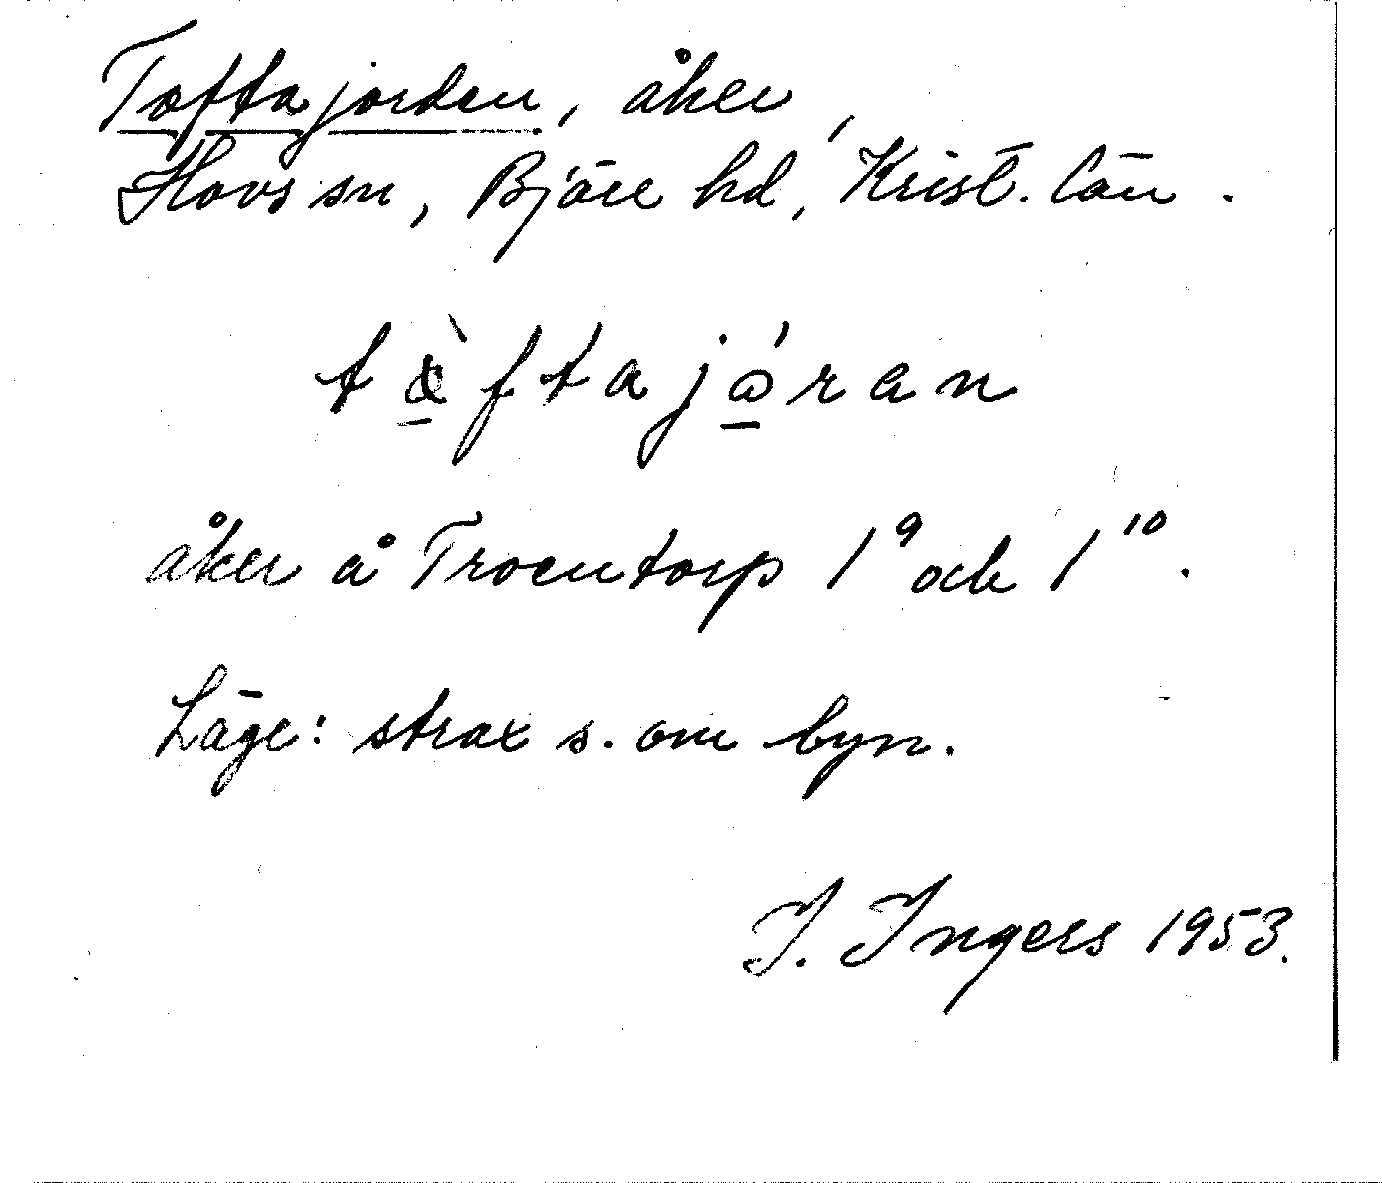 Toftajorden, åker,
Hovs sn, Bjäre hd, Krist. län.
tåftajo̱ran
åker å Troentorp 1⁹ och 1¹⁰.
Läge: strax s. om byn.
I. Ingers 1953.